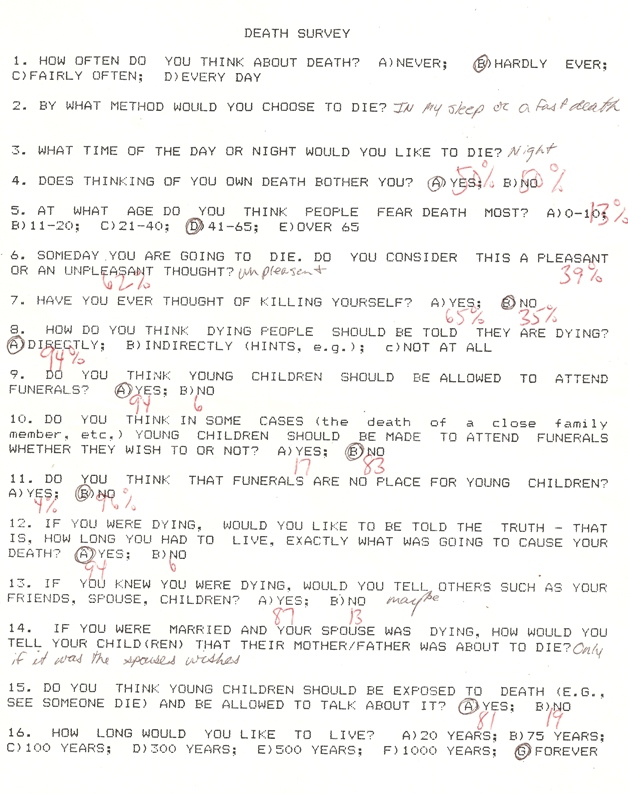 DEATH SURVEY
1. HOW OFTEN DO YOU THINK ABOUT DEATH? A)NEVER; B)HARDLY EVER;
C)FAIRLY OFTEN; D)EVERY DAY
2. BY WHAT METHOD WOULD YOU CHOOSE TO DIE? In my sleep or a fast death
3. WHAT TIME OF THE DAY OR NIGHT WOULD YOU LIKE TO DIE? Night
4. DOES THINKING OF YOU OWN DEATH BOTHER YOU? A)YES; 50% B)NO 50%
5. AT WHAT AGE DO YOU THINK PEOPLE FEAR DEATH MOST? A)0-10; 13%
B)11-20; C)21-40; D)41-65; E)OVER 65
6. SOMEDAY YOU ARE GOING TO DIE. DO YOU CONSIDER THIS A PLEASANT
OR AN UNPLEASANT THOUGHT? unpleasent
62% 39%
7. HAVE YOU EVER THOUGHT OF KILLING YOURSELF? A)YES; B)NO
65% 35%
8. HOW DO YOU THINK DYING PEOPLE SHOULD BE TOLD THEY ARE DYING?
A)DIRECTLY; B)INDIRECTLY (HINTS, e.g.); c)NOT AT ALL
94%
9. DO YOU THINK YOUNG CHILDREN SHOULD BE ALLOWED TO ATTEND
FUNERALS? A)YES; B)NO
94 6
10. DO YOU THINK IN SOME CASES (the death of a close family
member, etc.) YOUNG CHILDREN SHOULD BE MADE TO ATTEND FUNERALS
WHETHER THEY WISH TO OR NOT? A)YES; B)NO
17 83
11. DO YOU THINK THAT FUNERALS ARE NO PLACE FOR YOUNG CHILDREN?
A)YES; B)NO
4% 96%
12. IF YOU WERE DYING, WOULD YOU LIKE TO BE TOLD THE TRUTH - THAT
IS, HOW LONG YOU HAD TO LIVE, EXACTLY WHAT WAS GOING TO CAUSE YOUR
DEATH? A)YES; B)NO
94 6
13. IF YOU KNEW YOU WERE DYING, WOULD YOU TELL OTHERS SUCH AS YOUR
FRIENDS, SPOUSE, CHILDREN? A)YES; B)NO maybe
87 13
14. IF YOU WERE MARRIED AND YOUR SPOUSE WAS DYING, HOW WOULD YOU
TELL YOUR CHILD(REN) THAT THEIR MOTHER/FATHER WAS ABOUT TO DIE? Only
if it was the spouses wishes
15. DO YOU THINK YOUNG CHILDREN SHOULD BE EXPOSED TO DEATH (E.G.,
SEE SOMEONE DIE) AND BE ALLOWED TO TALK ABOUT IT? A)YES; B)NO
81 19
16. HOW LONG WOULD YOU LIKE TO LIVE? A)20 YEARS; B)75 YEARS;
C)100 YEARS; D)300 YEARS; E)500 YEARS; F)1000 YEARS; G)FOREVER